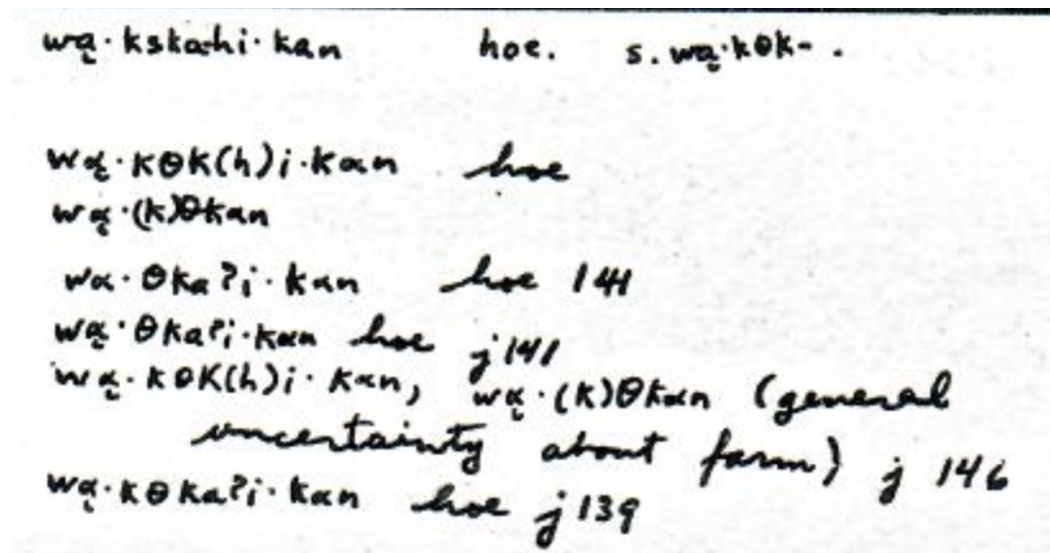 wą·kska·hi·kan hoe. s. wą·kθk- .
wą·kθk(h)i·kan hoe
wą·(k)θkan
wa·θkaʔi·kan hoe 141
wą·θkaʔi·kan hoe j141
wą·kθk(h)i·kan, wą·(k)θkan (general
uncertainty about form) j 146
wą·kθkaʔi·kan hoe j139